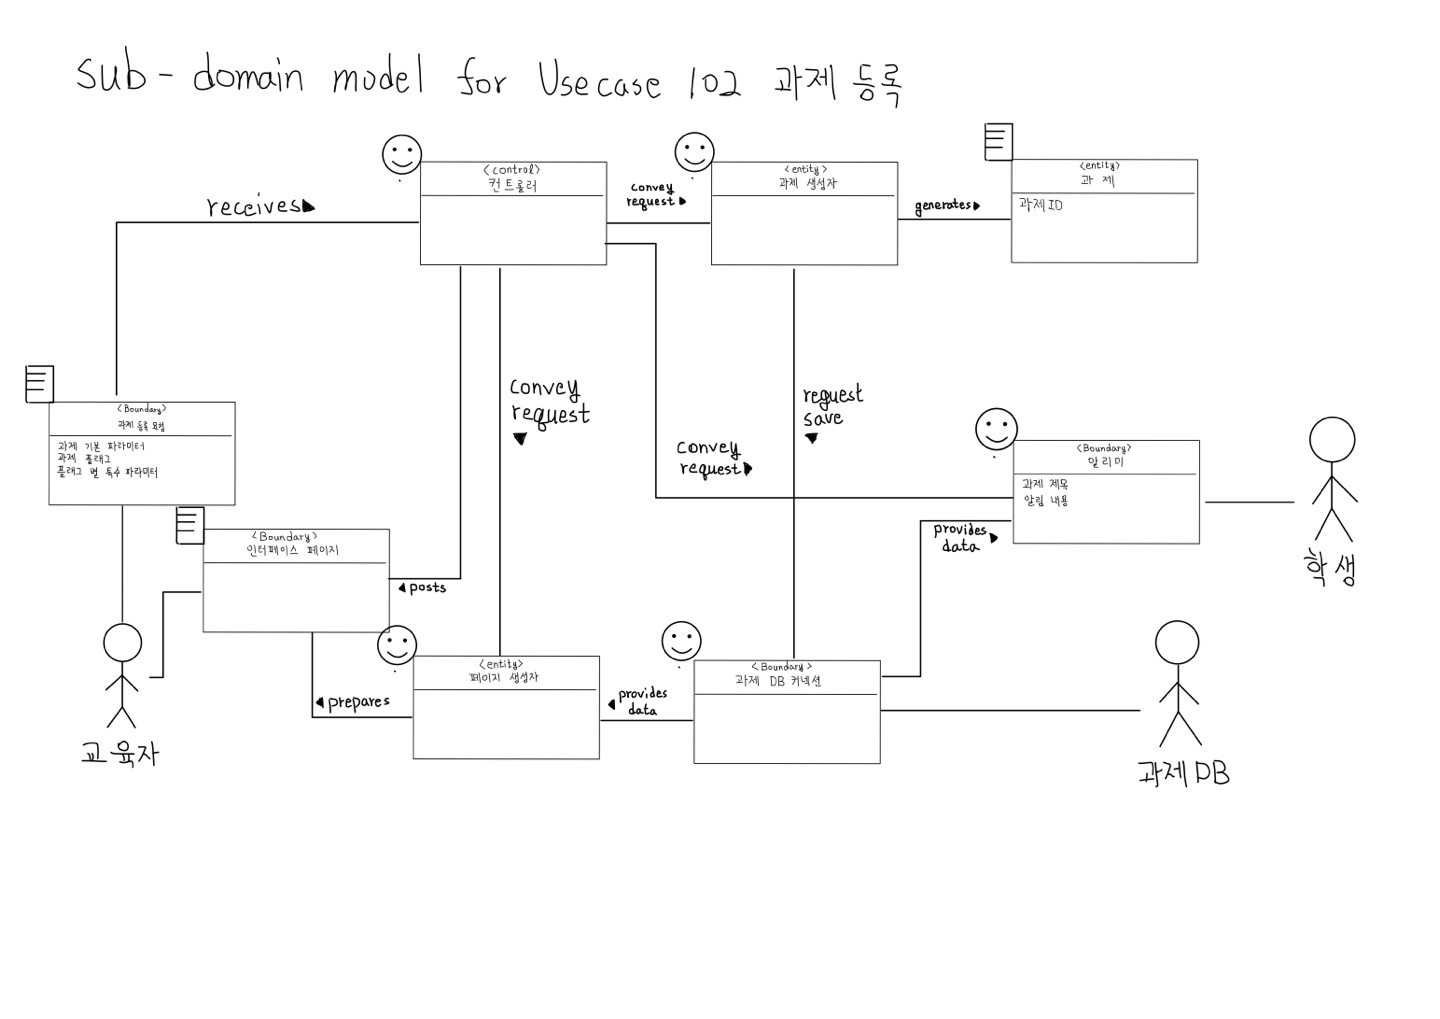 sub-domain model for Usecase 102 과제 등록
<control>
컨트롤러
convey
request
<entity>
과제 생성자
generates
<entity>
과제
과제ID
receives
<Boundary>
과제 등록 요청
과제 기본 파라미터
과제 플래그
플래그 별 특수 파라미터
convey
request
request
save
convey
request
<Boundary>
알리미
과제 제목
알림 내용
provides
data
학생
<Boundary>
인터페이스 페이지
posts
<entity>
페이지 생성자
prepares
provides
data
<Boundary>
과제 DB 커넥션
교육자
과제DB